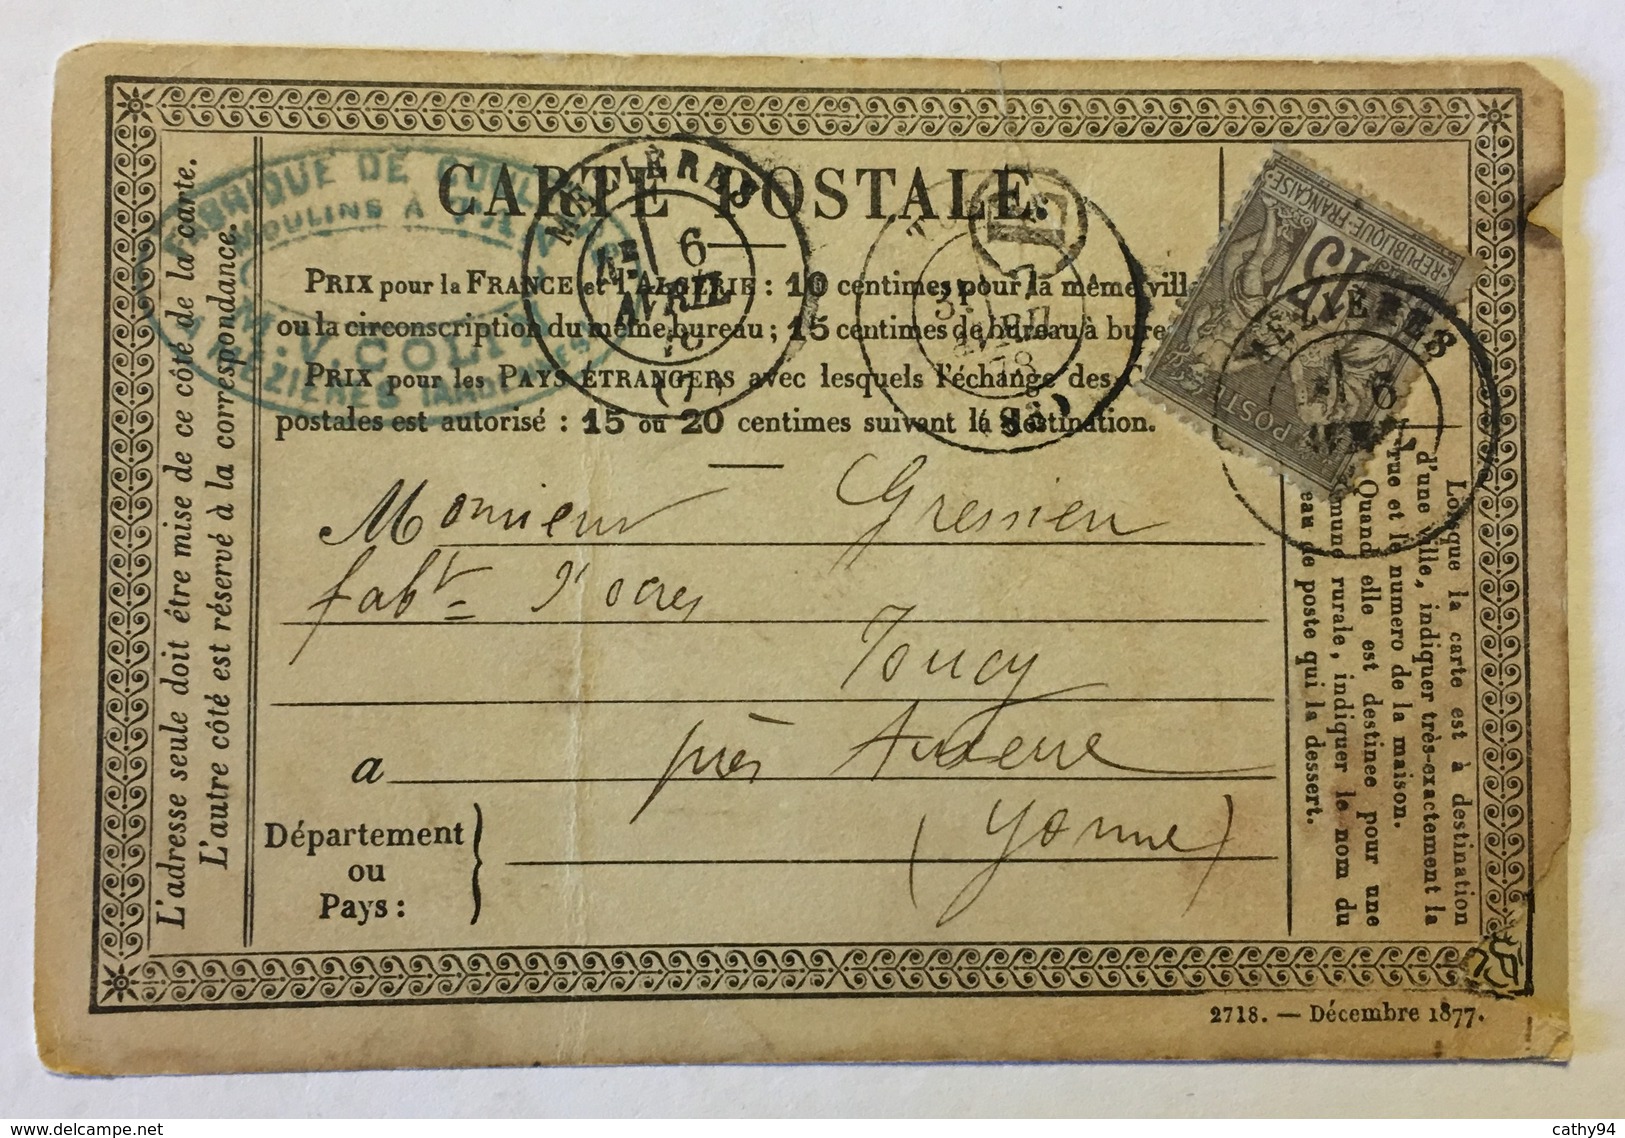 CARTE POSTALE.
PRIX pour la FRANCE et l'ALGÉRIE : 10 centimes pour la même vill
ou la circonscription du même bureau ; 15 centimes de bureau à bure
PRIX pour les PAYS ÉTRANGERS avec lesquels l'échange des C
postales est autorisé : 15 ou 20 centimes suivant la destination.
L'adresse seule doit être mise de ce côté de la carte.
L'autre côté est réservé à la correspondance.
FABRIQUE DE
MOULINS A
M. V. COLIN
A MÉZIÈRES
MÉZIÈRES
6
AVRIL
(7)
7
AVRIL
78
REPUBLIQUE FRANÇAISE
15
POSTE
MÉZIÈRES
6
Monsieur Gressien
fabt d'ocres
Toucy
a près Auxerre
Département
ou
Pays :
(Yonne)
Lorsque la carte est à destination
d'une ville, indiquer très-exactement la
rue et le numero de la maison.
Quand elle est destinee pour une
mmune rurale, indiquer le nom du
eau de poste qui la dessert.
2718. — Décembre 1877.
delcampe.net
cathy94